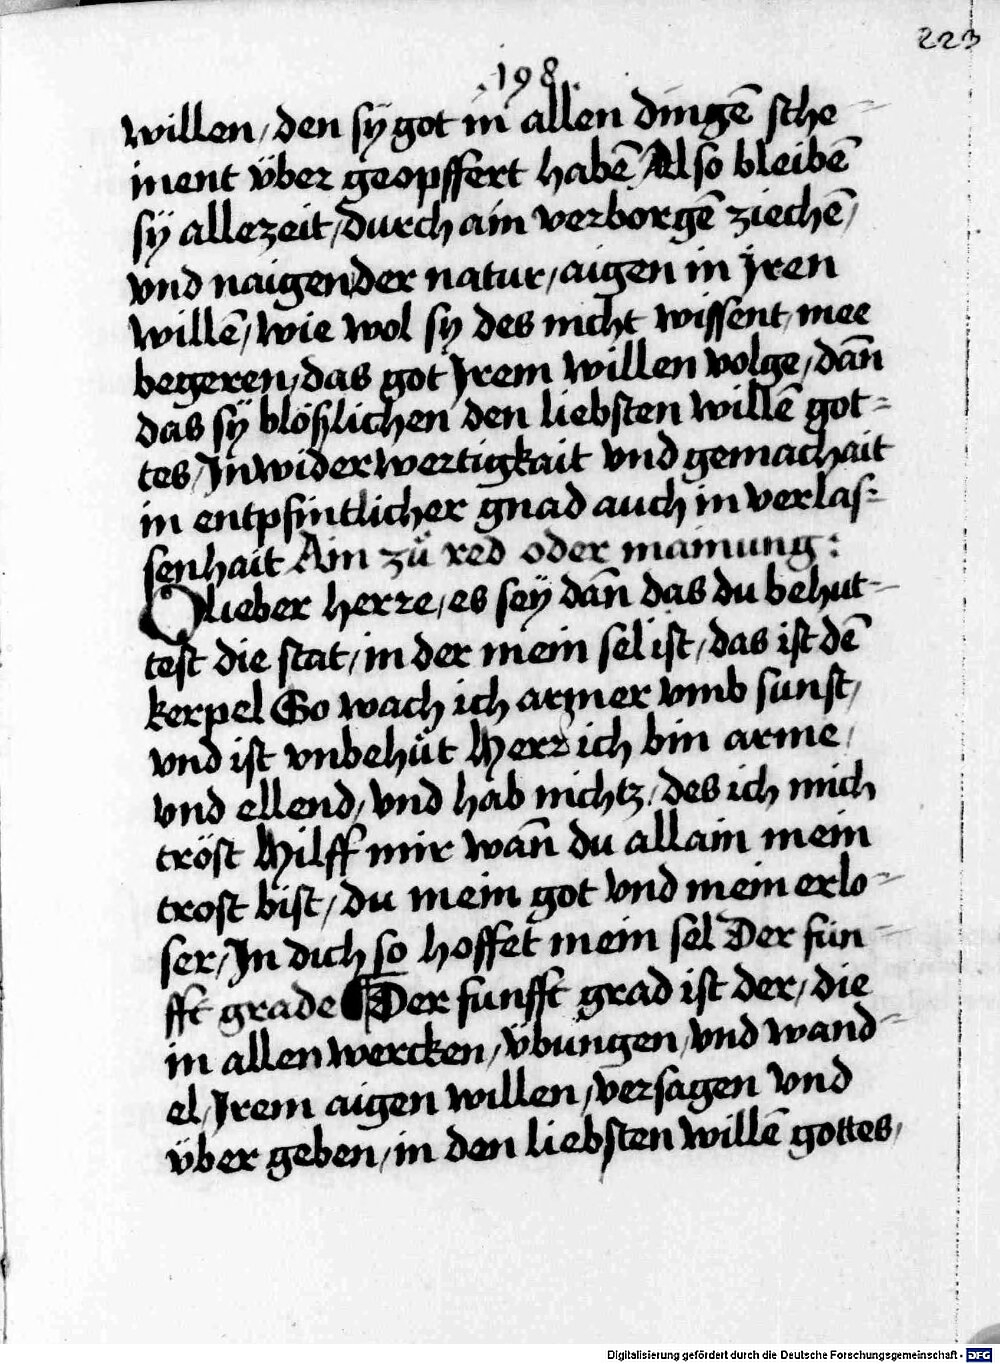 223
.198.
willen/den sÿ got in allen dingē sche=
inent über geopffert habē Also bleibē
sÿ allezeit/durch ain verborgē ziechē/
vnd naigen der natur/aigen in jren
willē/wie wol sy des nicht wissent/mee
begeren/das got Jrem willen volge/dañ
das sÿ blößlichen den liebsten willē got=
tes/In widerwertigkait vnd gemachait
in entpfintlicher gnad auch in verlas=
senhait Ain zů red oder mainung:
O lieber herre/es seÿ dañ das du behut=
test die stat/in der mein sel ist/das ist dē
kerpel So wach ich armer vmb sunst/
vnd ist vnbehüt Herr ich bin arme/
vnd ellend/vnd hab nichtz/des ich mich
tröst Hilff mir wañ du allain mein
trost bist/du mein got vnd mein erlo=
ser/In dich so hoffet mein sel Der fün=
fft grade ¶ Der funfft grad ist der/die
in allen wercken/übungen/vnd wand=
el/Jrem aigen willen/versagen vnd
über geben/in den liebsten willē gottes/
Digitalisierung gefördert durch die Deutsche Forschungsgemeinschaft - DFG